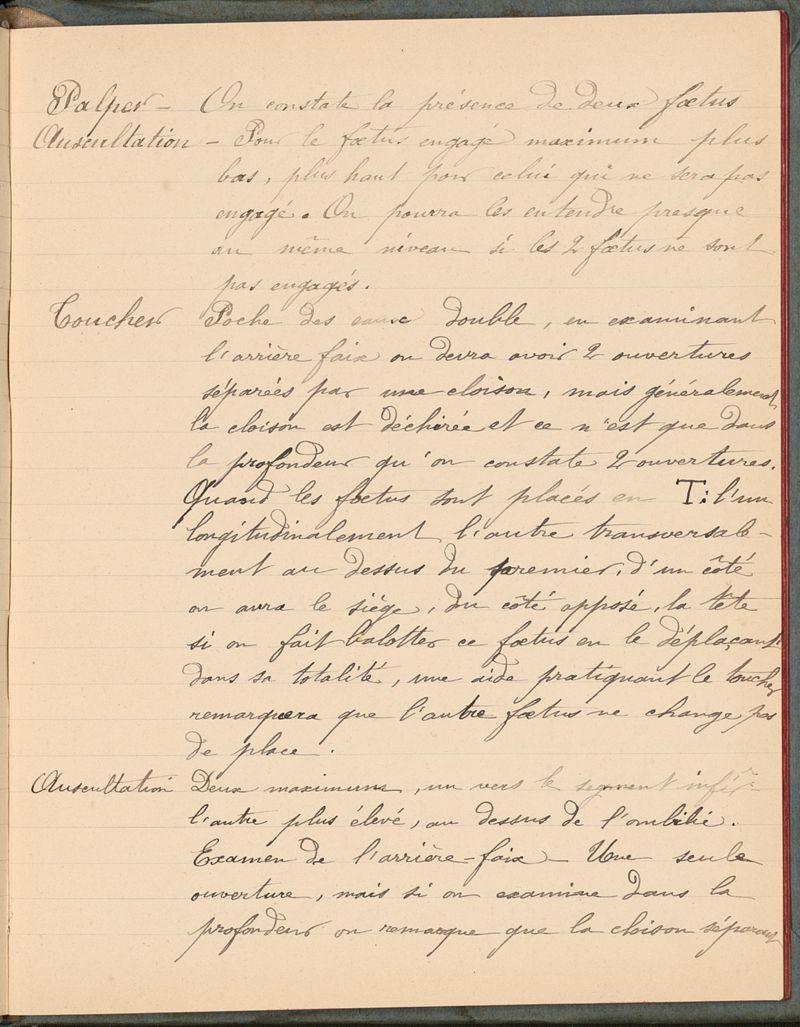 Palper – On constate la présence de deux fœtus
Auscultation – Pour le fœtus engagé maximum plus
bas, plus haut pour celui qui ne sera pas
engagé. On pourra les entendre presque
au même niveau si les 2 fœtus ne sont
pas engagés.
Toucher Poche des eaux double, en examinant
l'arrière faix on devra avoir 2 ouvertures
séparées par une cloison, mais généralement
la cloison est déchirée et ce n'est que dans
la profondeur qu'on constate 2 ouvertures.
Quand les fœtus sont placés en T: l'un
longitudinalement l'autre transversale-
ment au dessus du premier, d'un côté
on aura le siège, du côté opposé, la tête
si on fait balotter ce fœtus en le déplaçant
dans sa totalité, une aide pratiquant le toucher
remarquera que l'autre fœtus ne change pas
de place.
Auscultation Deux maximums, un vers le segment infér
l'autre plus élevé, au dessus de l'ombilic.
Examen de l'arrière-faix – Une seule
ouverture, mais si on examine dans la
profondeur on remarque que la cloison séparant